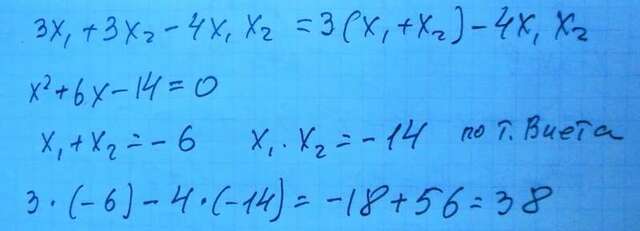 3x₁+3x₂-4x₁x₂ =3(x₁+x₂)-4x₁x₂
x²+6x-14=0
x₁+x₂=-6 x₁·x₂=-14 по т. Виета
3·(-6)-4·(-14)=-18+56=38